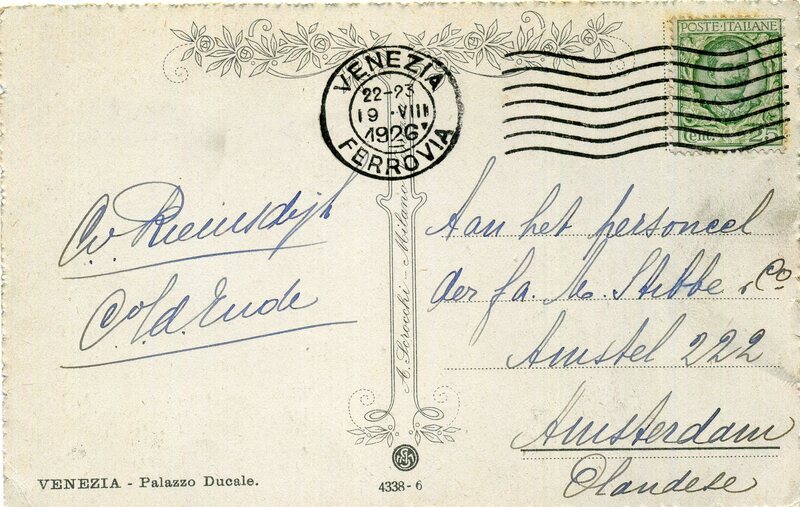 POSTE·ITALIANE
Cent. 25
VENEZIA
22-23
19 ·VIII
1926
FERROVIA
C. v. Riemsdijk
C. v/d. Ende
Aan het personeel
der fa. M. Stibbe & Co
Amstel 222
Amsterdam
Olandese
A. Scrocchi - Milano
VENEZIA - Palazzo Ducale.
4338-6